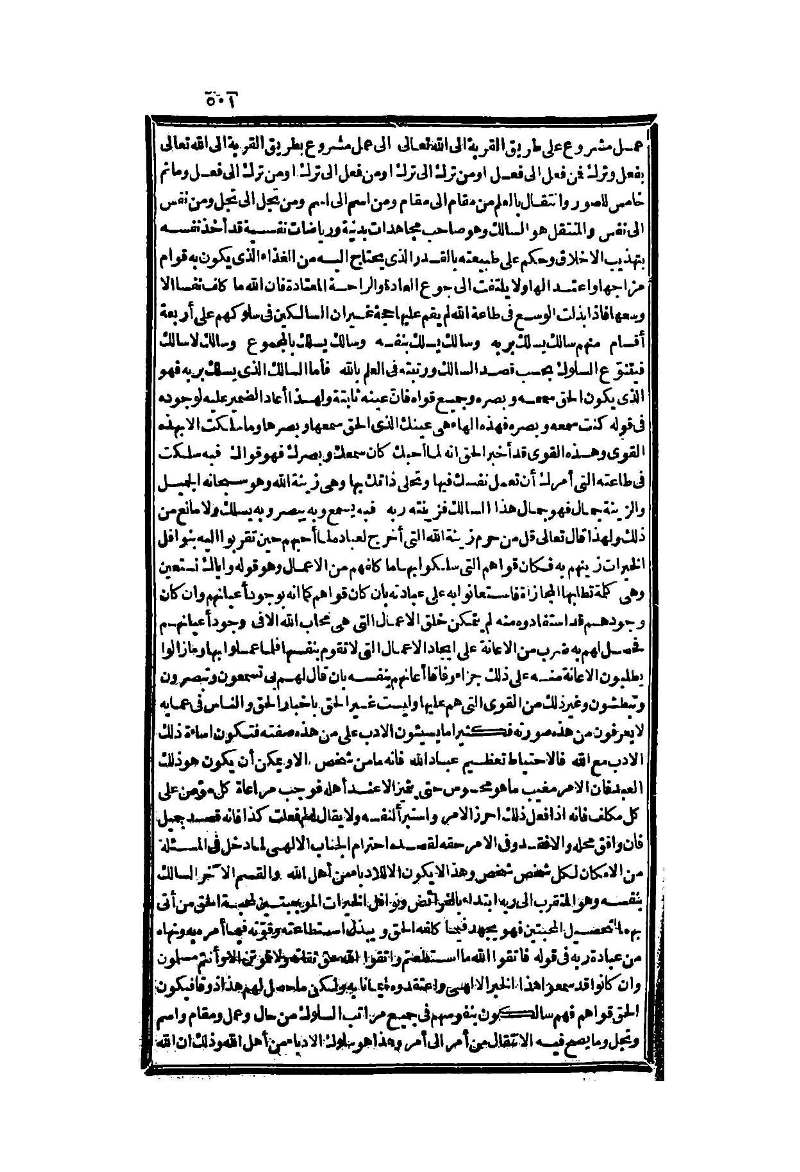 ٥٠٢
عمل مشروع على طريق القربة الى الله تعالى الى عمل مشروع بطريق القربة الى الله تعالى
بفعل وترك فمن فعل الى فعل او من ترك الى ترك او من فعل الى ترك او من ترك الى فعل وماثم
خامس للصور وانتقال بالعلم من مقام الى مقام ومن اسم الى اسم ومن تجل الى تجل ومن نفس
الى نفس والمنتقل هو السالك وهو صاحب مجاهدات بدنية ورياضات نفسية قد أخذ نفسه
بتهذيب الاخلاق وحكم على طبيعته بالقدر الذى يحتاج اليه من الغذاء الذى يكون به قوام
مزاجها واعتدالها ولا يلتفت الى جوع العادة والراحة المعتادة فان الله ما كلف نفسا الا
وسعها فاذا بذلت الوسع فى طاعة الله لم يقم عليها حجة غير ان السالكين فى سلوكهم على أربعة
أقسام منهم سالك يسلك بربه وسالك يسلك بنفسه وسالك يسلك بالمجموع وسالك لا سالك
فيتنوّع السلوك بحسب قصد السالك ورتبته فى العلم بالله فأما السالك الذى يسلك بربه فهو
الذى يكون الحق سمعه وبصره وجميع قواه فان عينه ثابتة ولهذا أعاد الضمير عليه لوجوده
فى قوله كنت سمعه وبصره فهذه الهاء هى عينك الذى الحق سمعها وبصرها وما سلكت الا بهذه
القوى وهذه القوى قد أخبر الحق انه لما أحبك كان سمعك وبصرك فهو قواك فبه سلكت
فى طاعته التى أمرك أن تعمل نفسك فيها وتحلى ذاتك بها وهى زينة الله وهو سبحانه الجميل
والزينة جمال فهو جمال هذا السالك فزينته ربه فبه يسمع وبه يبصر وبه يسلك ولا مانع من
ذلك ولهذا قال تعالى قل من حرم زينة الله التى أخرج لعباده لما أحبهم حين تقربوا اليه بنوافل
الخيرات زينهم به فكان قواهم التى سلكوا بها ما كلفهم من الاعمال وهو قوله واياك نستعين
وهى كلمة تطلبها المجازاة فاستعانوا به على عبادته بان كان قواهم كما انه بوجود أعيانهم وان كان
وجودهم قد استفادوه منه لم يتمكن خلق الاعمال التى هى محاب الله الا فى وجود أعيانهم
فحصل لهم به ضرب من الاعانة على ايجاد الاعمال التى لا تقوم بنفسها فلما عملوا بها وما زالوا
يطلبون الاعانة منه على ذلك جزاء وفاقا أعانهم بنفسه بان قال لهم بى تسمعون وتبصرون
وتبطشون وغير ذلك من القوى التى هم عليها وليست غير الحق باخبار الحق والناس فى عماية
لا يعرفون من هذه صورته فكثيرا ما يسيئون الادب على من هذه صفته فتكون اساءة ذلك
الادب مع الله فالاحتياط تعظيم عباد الله فانه ما من شخص الا ويمكن أن يكون هو ذلك
العبد فان الامر مغيب ما هو محسوس حتى يتميز الا عند أهله فوجب مراعاة كل مؤمن على
كل مكلف فانه اذا فعل ذلك احرز الامر واستبرأ لنفسه ولا يقال له لم فعلت كذا فانه قصد جميل
فان وافق محله والا فقد وفى الامر حقه لقصده احترام الجناب الالهى لما دخل فى المسئلة
من الامكان لكل شخص شخص وهذا لا يكون الا للادباء من أهل الله والقسم الآخر السالك
بنفسه وهو المتقرب الى ربه ابتداء بالفرائض ونوافل الخيرات الموجبتين لمحبة الحق من أتى
بهما لتحصيل المحبتين فهو يجهد فيما كلفه الحق ويبذل استطاعته وقوته فيما أمر به ونهاه
من عبادة ربه فى قوله فاتقوا الله ما استطعتم واتقوا الله حق تقاته ولا تموتن الا وأنتم مسلمون
وان كانوا قد سمعوا هذا الخبر الالهى واعتقدوه ايمانا به ولكن ما حصل لهم هذا ذوقا فيكون
الحق قواهم فهم سالكون بنفوسهم فى جميع مراتب السلوك من حال وعمل ومقام واسم
وتجل وما يصح فيه الانتقال من أمر الى أمر وهذا هو سلوك الادباء من أهل الله وذلك ان الله